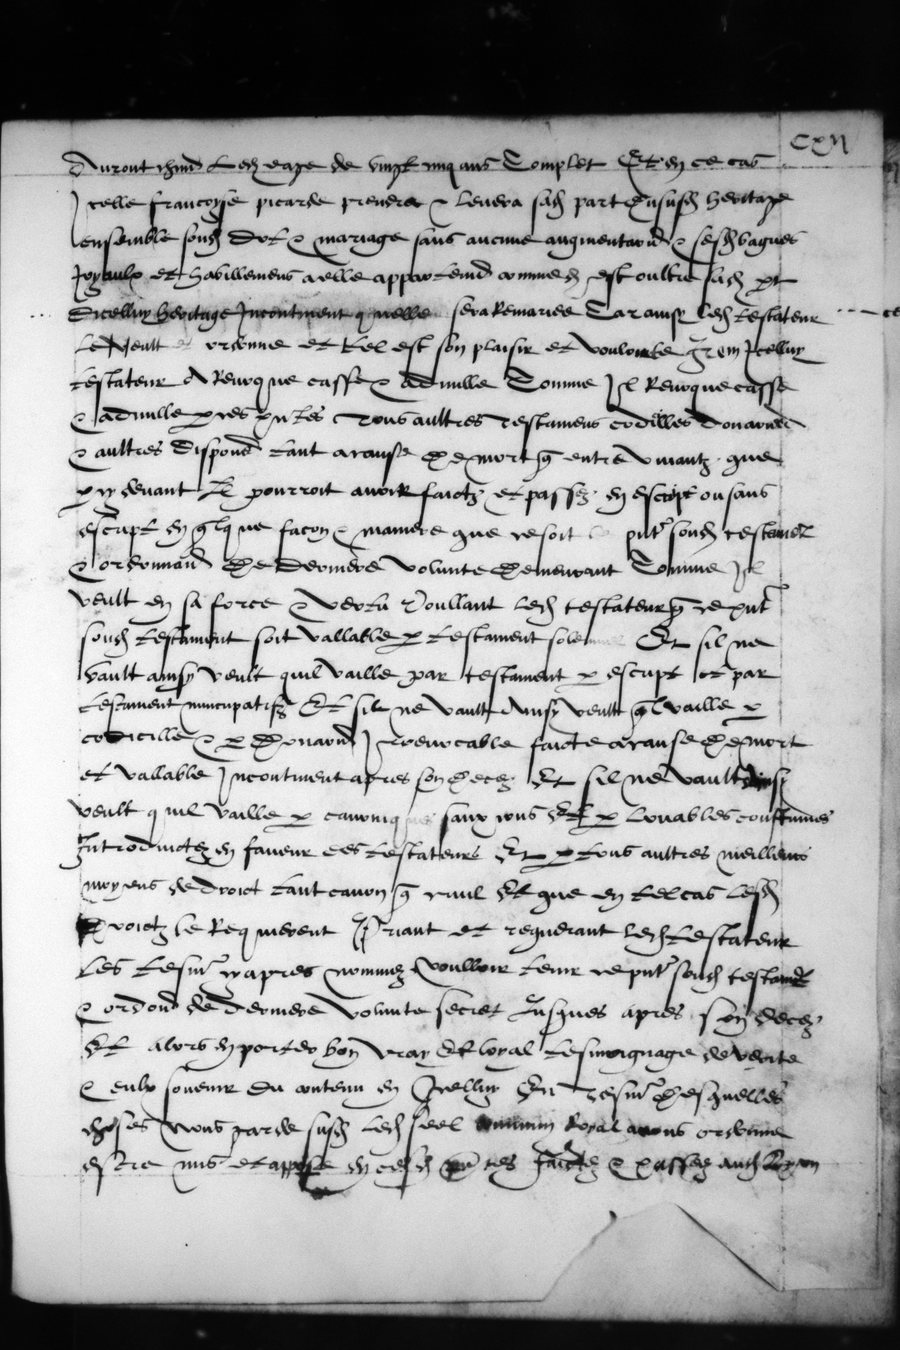 CXVI
Auront chūn led eage de vingt cinq ans Complet Et en ce cas
Icelle francoyse picarde prendra & levera sad part dususd heritage
ensemble sond dot & mariage sans aucune augmentation & sesd bagues
Joyaulx et habillemens a elle appartend comme d est oultre sad pt
Dicelluy heritage Incontinent quelle sera Remariee Car ainsy led testateur
Le Veult et ordonne et tel est son plaisir et voulonte Item Icelluy
testateur A Revoque casse & adnulle Comme Il Revoque casse
& adnulle p ces pntes Tous aultres Testamens codicilles donations
& aultres disponō tant a cause de mort q entre vivantz que
cy devant Il pourroit avoir faictz et passez en escript ou sans
escript en qlque facon & maniere que ce soit pnt sond testament
& ordonnance de derniere volunte demeurant Comme Il
veult en sa force & vertu Voullant led testateur q ce pnt
sond testament soit vallable p testament solennel Et sil ne
vault ainsy veult quil vaille par testament p escript et par
testament nuncupatif Et sil ne vault Ainsy veult ql vaille p
codicille & p donation Irrevocable faicte a cause de mort
et vallable Incontinent apres son decez Et sil ne vault Ainsy
veult quil vaille p canoniques sanxions Et p louables coustumes
Introduictez en faveur des testateurs Et p tous aultres meilleurs
moyens de droict tant canon q civil Et que en tel cas lesd
Droictz le Requierent Priant et requerant led testateur
Les tesm cy apres nommez Voulloir tenir ce pnt sond testament
& ordonn de derniere volunte secret Jusques apres son decez
Et alors en porter bon vray Et loyal tesmoignage de verite
& eulx souvenir du contenu en Icelluy En Tesm desquelles
choses Nous garde susd led seel commun Royal avons ordonne
estre mis et appose en cesd pntes faictez & passez aud Lyon